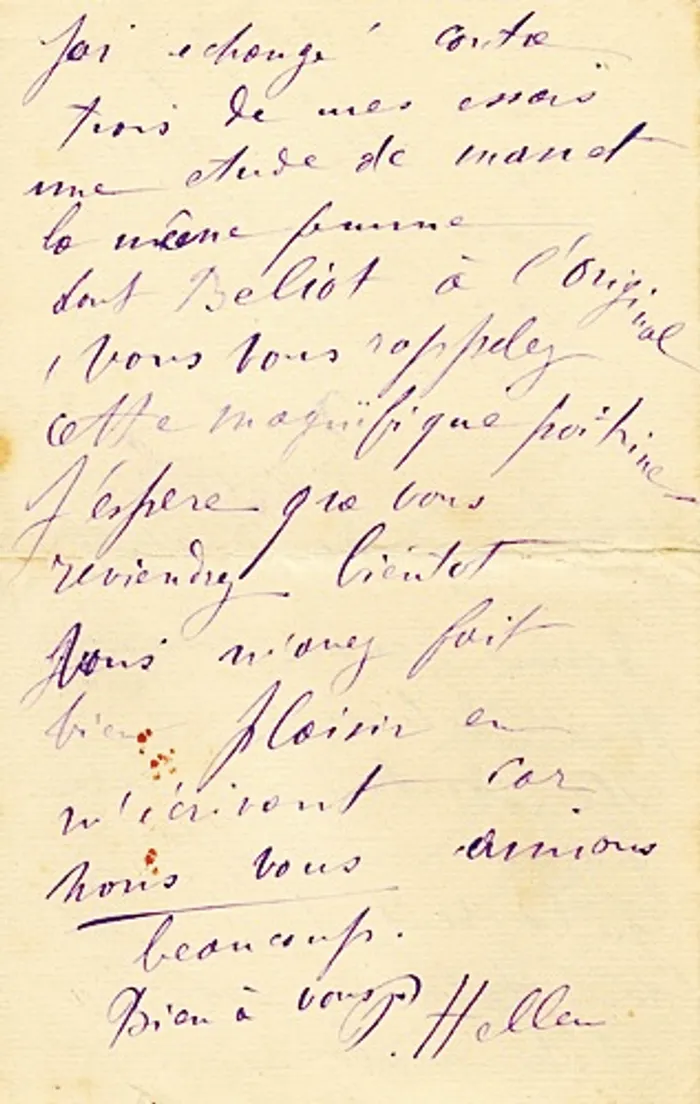 J'ai echangé contre
trois de mes essais
une etude de manet
la même femme
dont Beliot à l'original
, vous vous rappelez
cette magnifique poitrine
J'éspere que vous
reviendrez bientot
Vous m'avez fait
bien plaisir en
m'écrivant car
nous vous aimons
beaucoup.
Bien à vous P Helleu